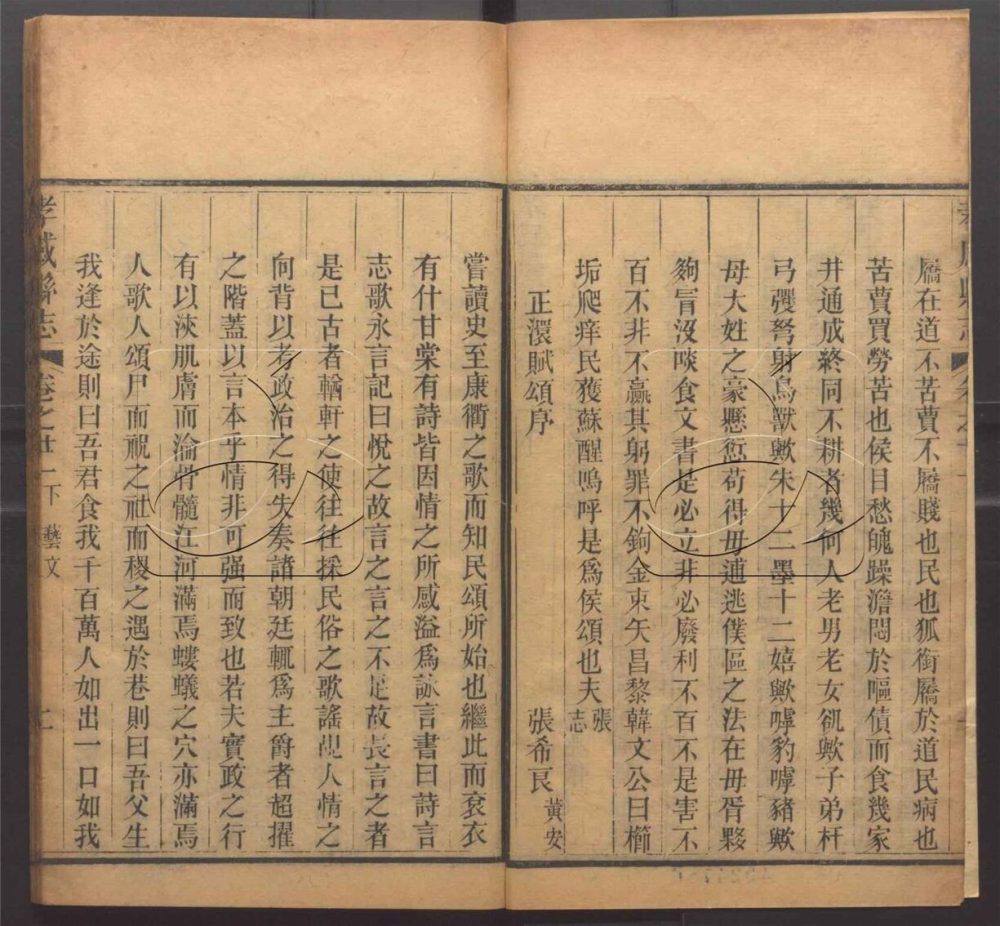 屩在道不苦蕒不屩賤也民也狐銜屩於道民病也
苦蕒買勞苦也侯目愁魄躁澹悶於嘔債而食幾家
井通成終同不耕者幾何人老男老女飢歟子弟杆
弓彏弩射鳥獸歟朱十二墨十二嬉歟嘑豹嘑豬歟
母大姓之豪懸愆苟得毋逋逃僕區之法在毋胥夥
夠冒沒啖食文書是必立非必廢利不百不是害不
百不非不羸其躬罪不鉤金束矢昌黎韓文公曰櫛
垢爬痒民獲蘇醒嗚呼是爲侯頌也夫 張志
正澴賦頌序 張希良 黃安
嘗讀史至康衢之歌而知民頌所始也繼此而袞衣
有什甘棠有詩皆因情之所感溢爲詠言書曰詩言
志歌永言記曰悅之故言之言之不足故長言之者
是已古者輶軒之使往往採民俗之歌謠覘人情之
向背以考政治之得失奏諸朝廷輒爲主爵者超擢
之階蓋以言本乎情非可强而致也若夫實政之行
有以浹肌膚而淪骨髓江河滿焉螻蟻之穴亦滿焉
人歌人頌尸而祝之社而稷之遇於巷則曰吾父生
我逢於途則曰吾君食我千百萬人如出一口如我
孝感縣志 卷之廿一下 藝文